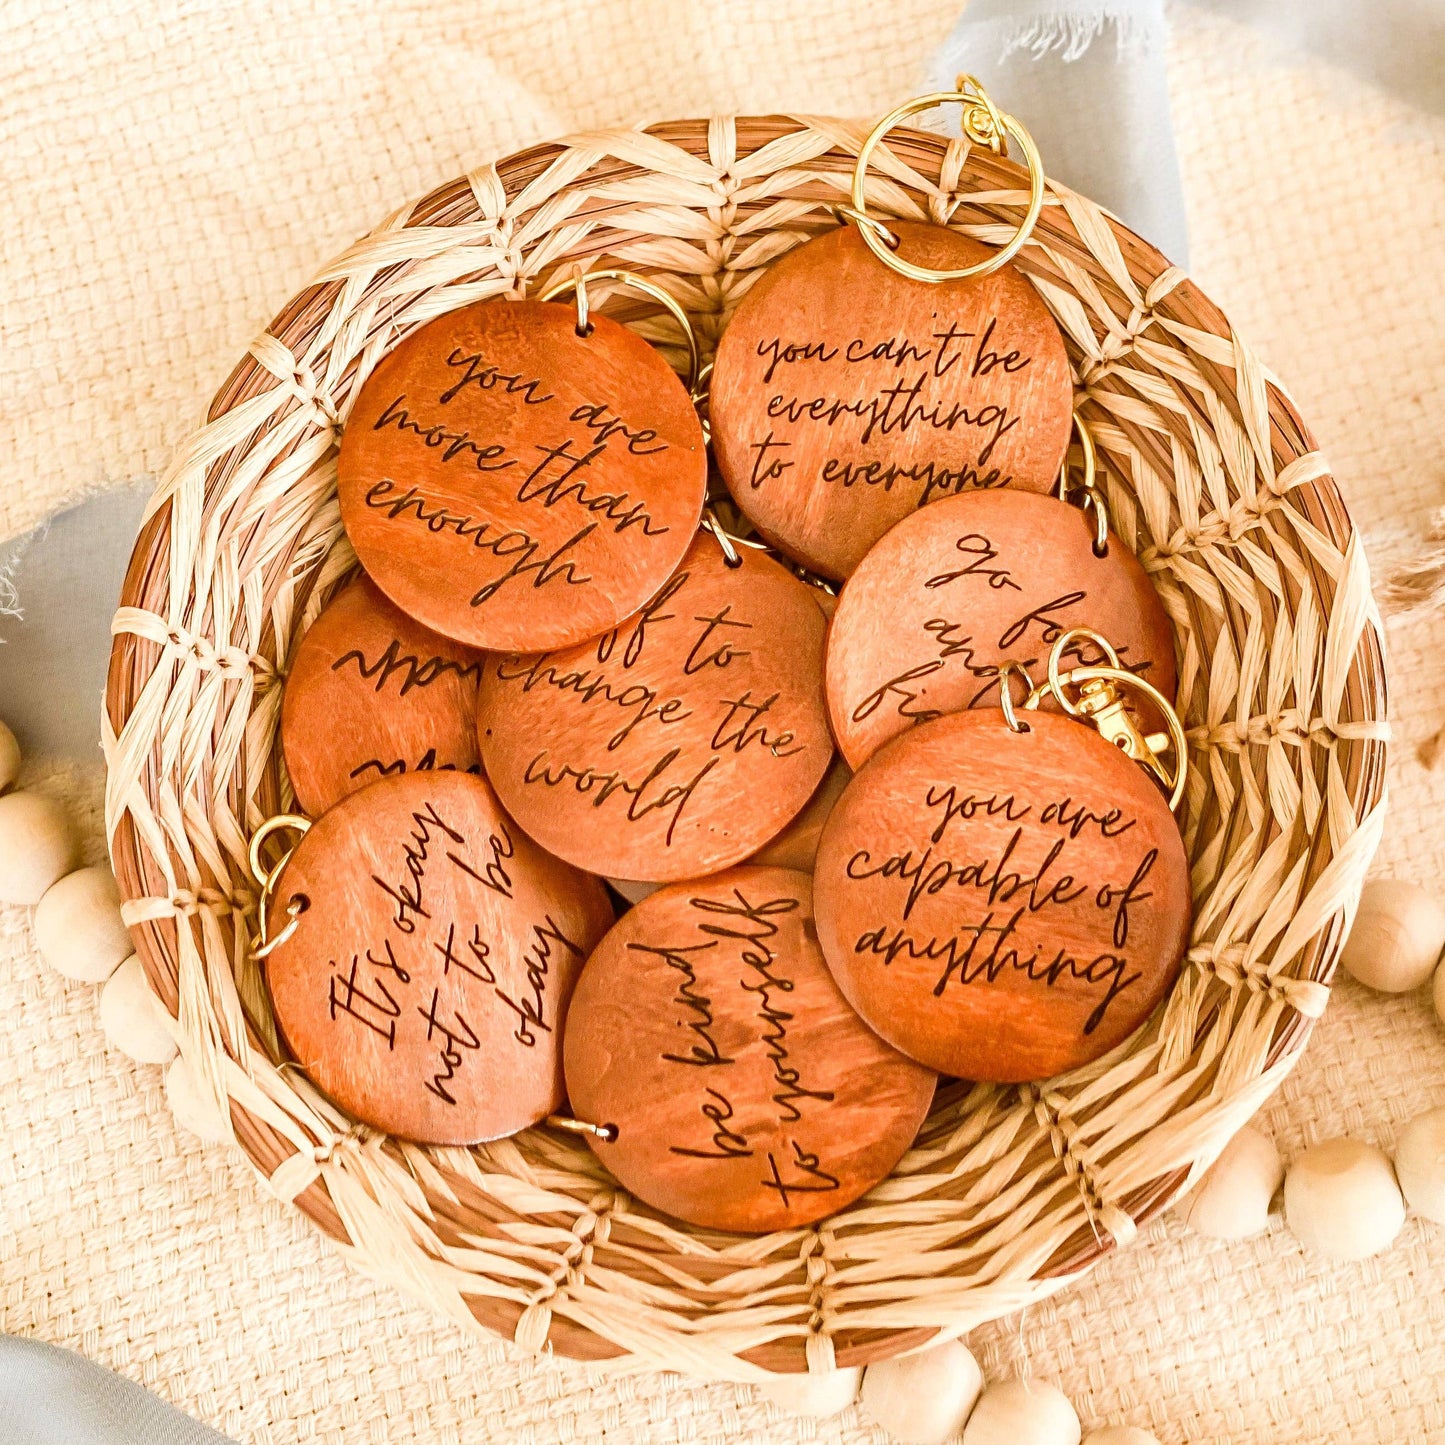 you are
more than
enough
you can't be
everything
to everyone
go fo
and
fi
ff to
change the
world...
you are
capable of
anything
It's okay
not to be
okay
be kind
to yourself